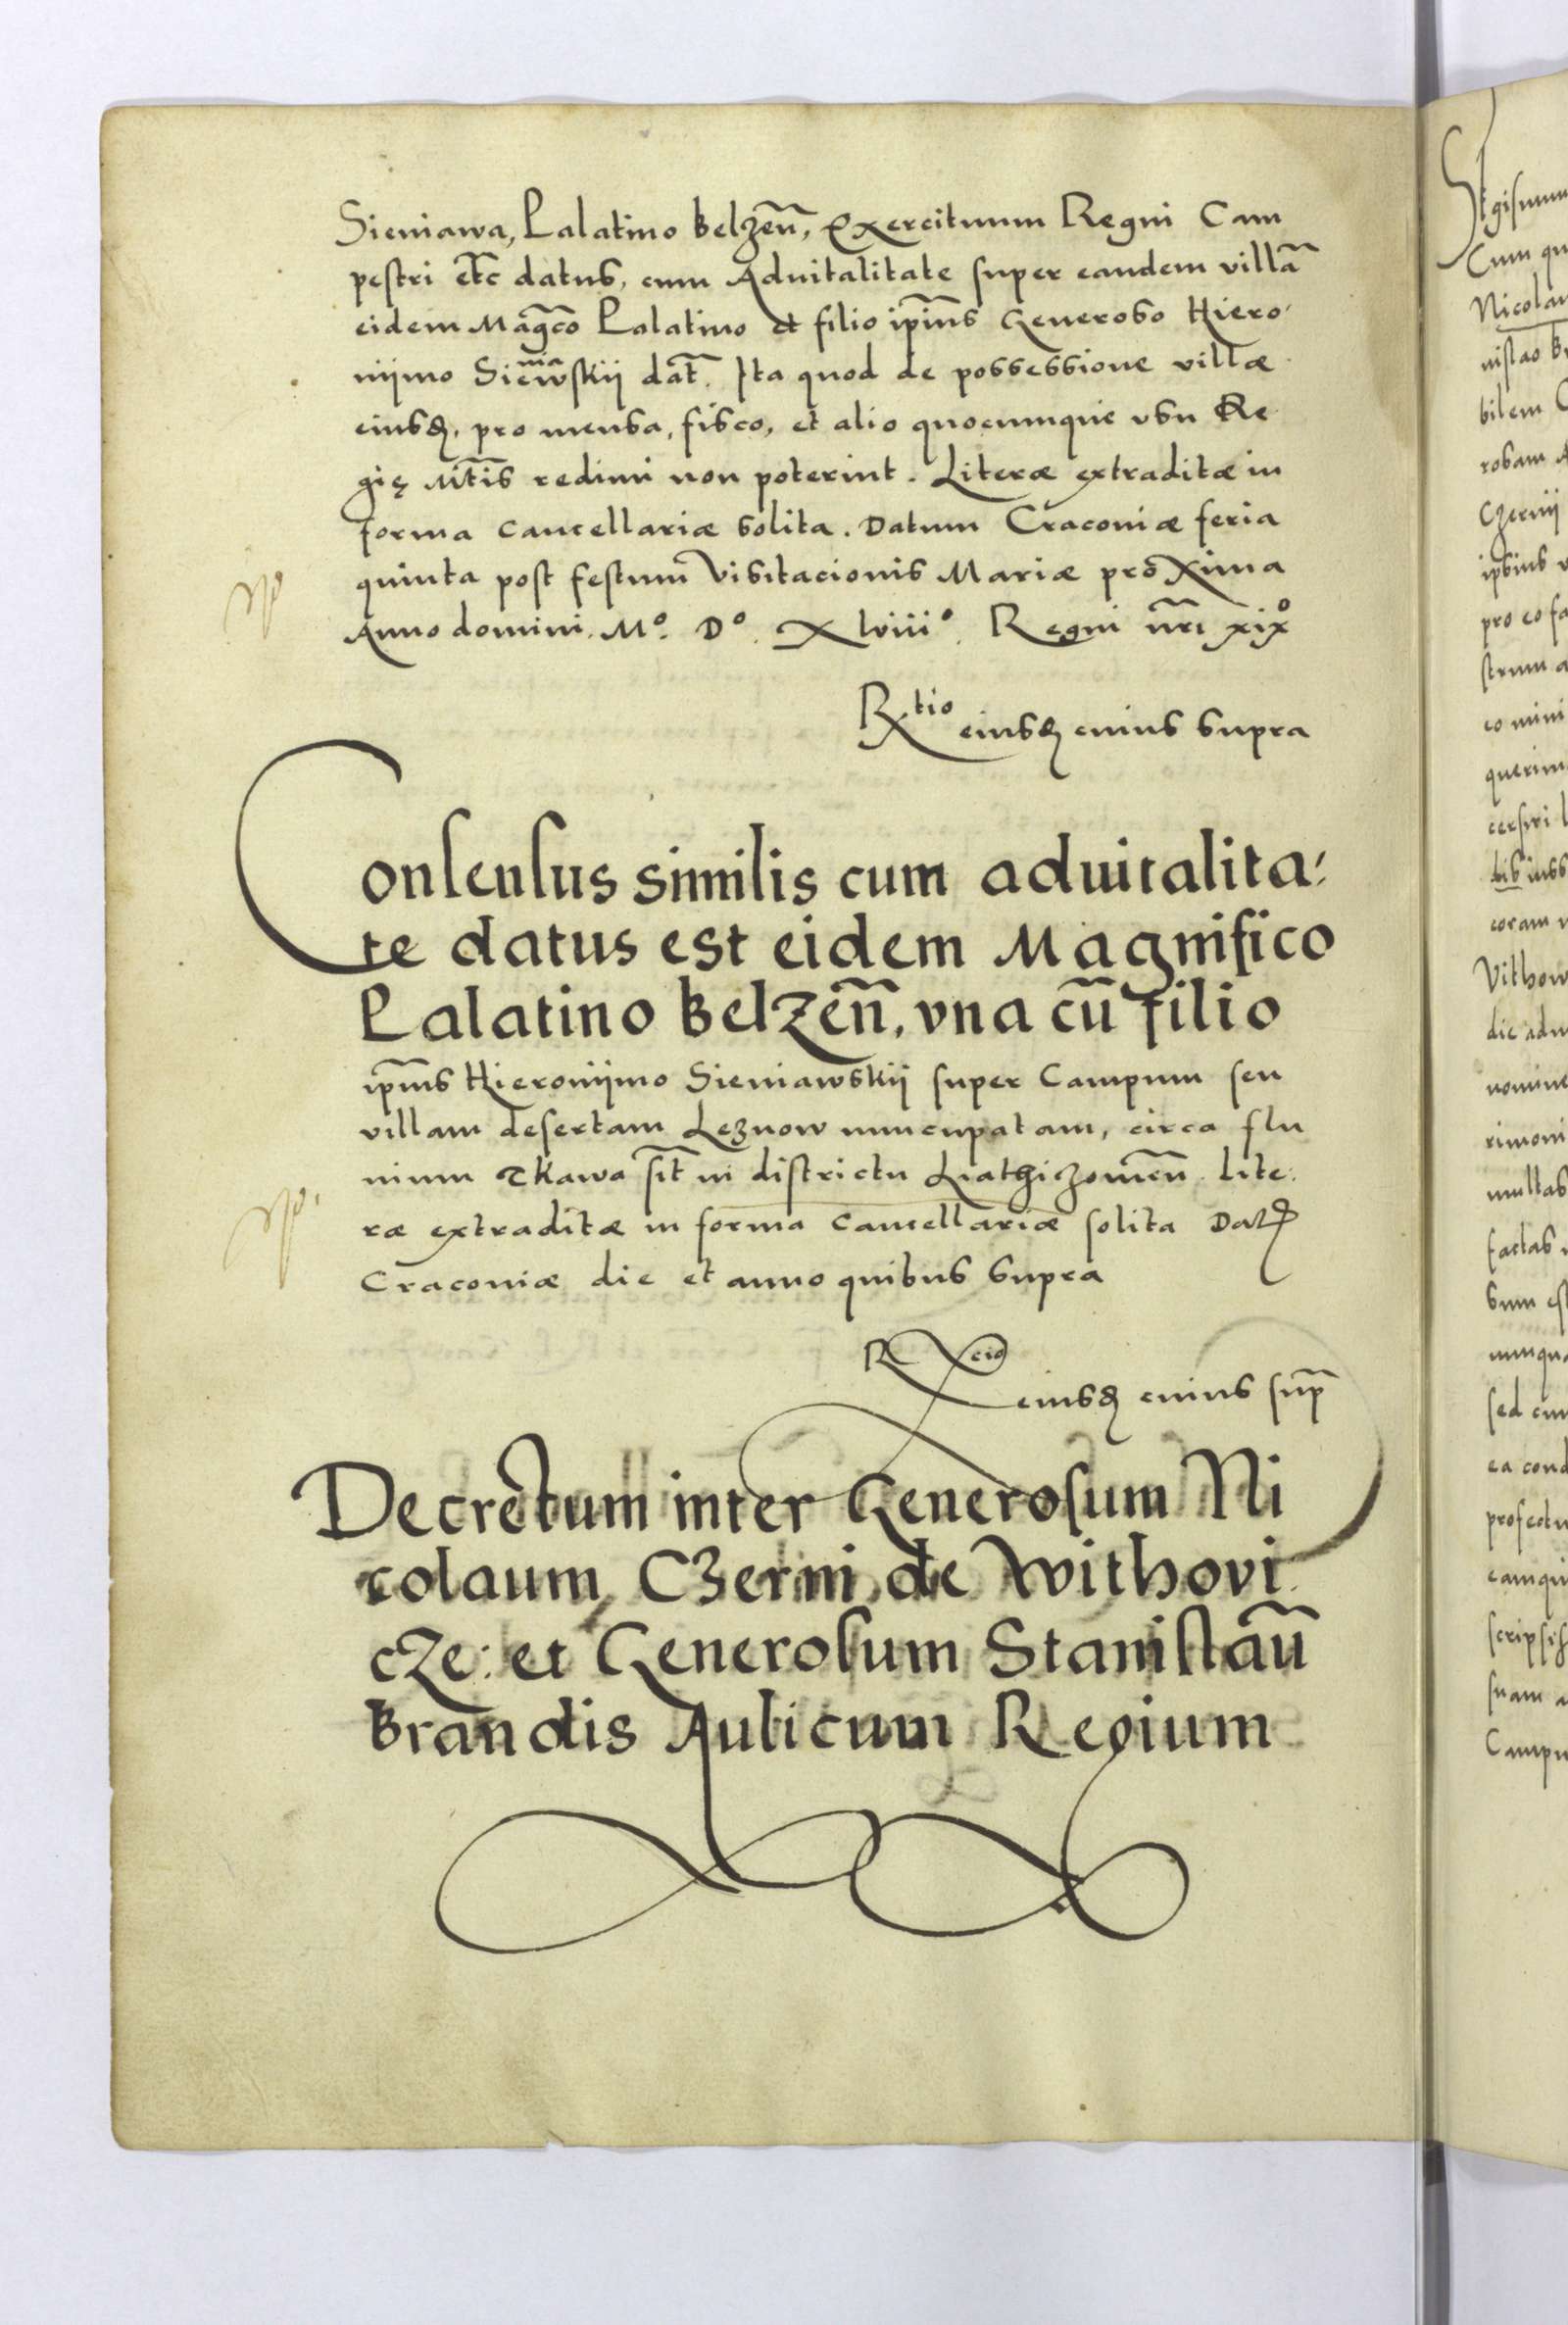 Sieniawa, Palatino Belzeñ, Exercituum Regni Cam
pestri etc datus, cum Aduitalitate super eandem villã
eidem Magco Palatino et filio ipius Generoso Hiero-
nijmo Sieniawskij dat. Ita quod de possessione villæ
eiusd. pro mensa, fisco, et alio quocumque vsu Re
gię Mtis redimi non poterint. Literæ extraditæ in
forma Cancellariæ solita. Datum Cracoviæ feria
quinta post festum Visitacionis Mariæ proxima
Anno domini. Mº. Dº. Xlviiiº. Regni nri xixº
Rtio eiusd cuius supra
Consensus similis cum aduitalita-
te datus est eidem Magnifico
Palatino Belzeñ, vna cũ filio
ipius Hieronijmo Sieniawskij super Campum seu
villam desertam Leznow nuncupatam, circa flu
uium Ikawa sit in districtu Liathiczouien. Lite-
ræ extraditæ in forma Cancellariæ solita Dat
Cracoviæ die et anno quibus supra
Rcio eiusd cuius sup
Decretum inter Generosum Ni
colaum Czerni de Withovi
cze: et Generosum Stanislaũ
Brandis Aulicum Regium
Sigismun
Cum qu
Nicolau
nislao B
bilem
robam
Czernij
ipsius
pro eo fa
strum a
eo mini
querim
cersiri
bis iuss
coram
Vithow
die adu
nomine
rimoni
multas
factas
sum est
nunqua
sed cum
ea cond
profectu
eamqu
scripsis
suam a
Campu